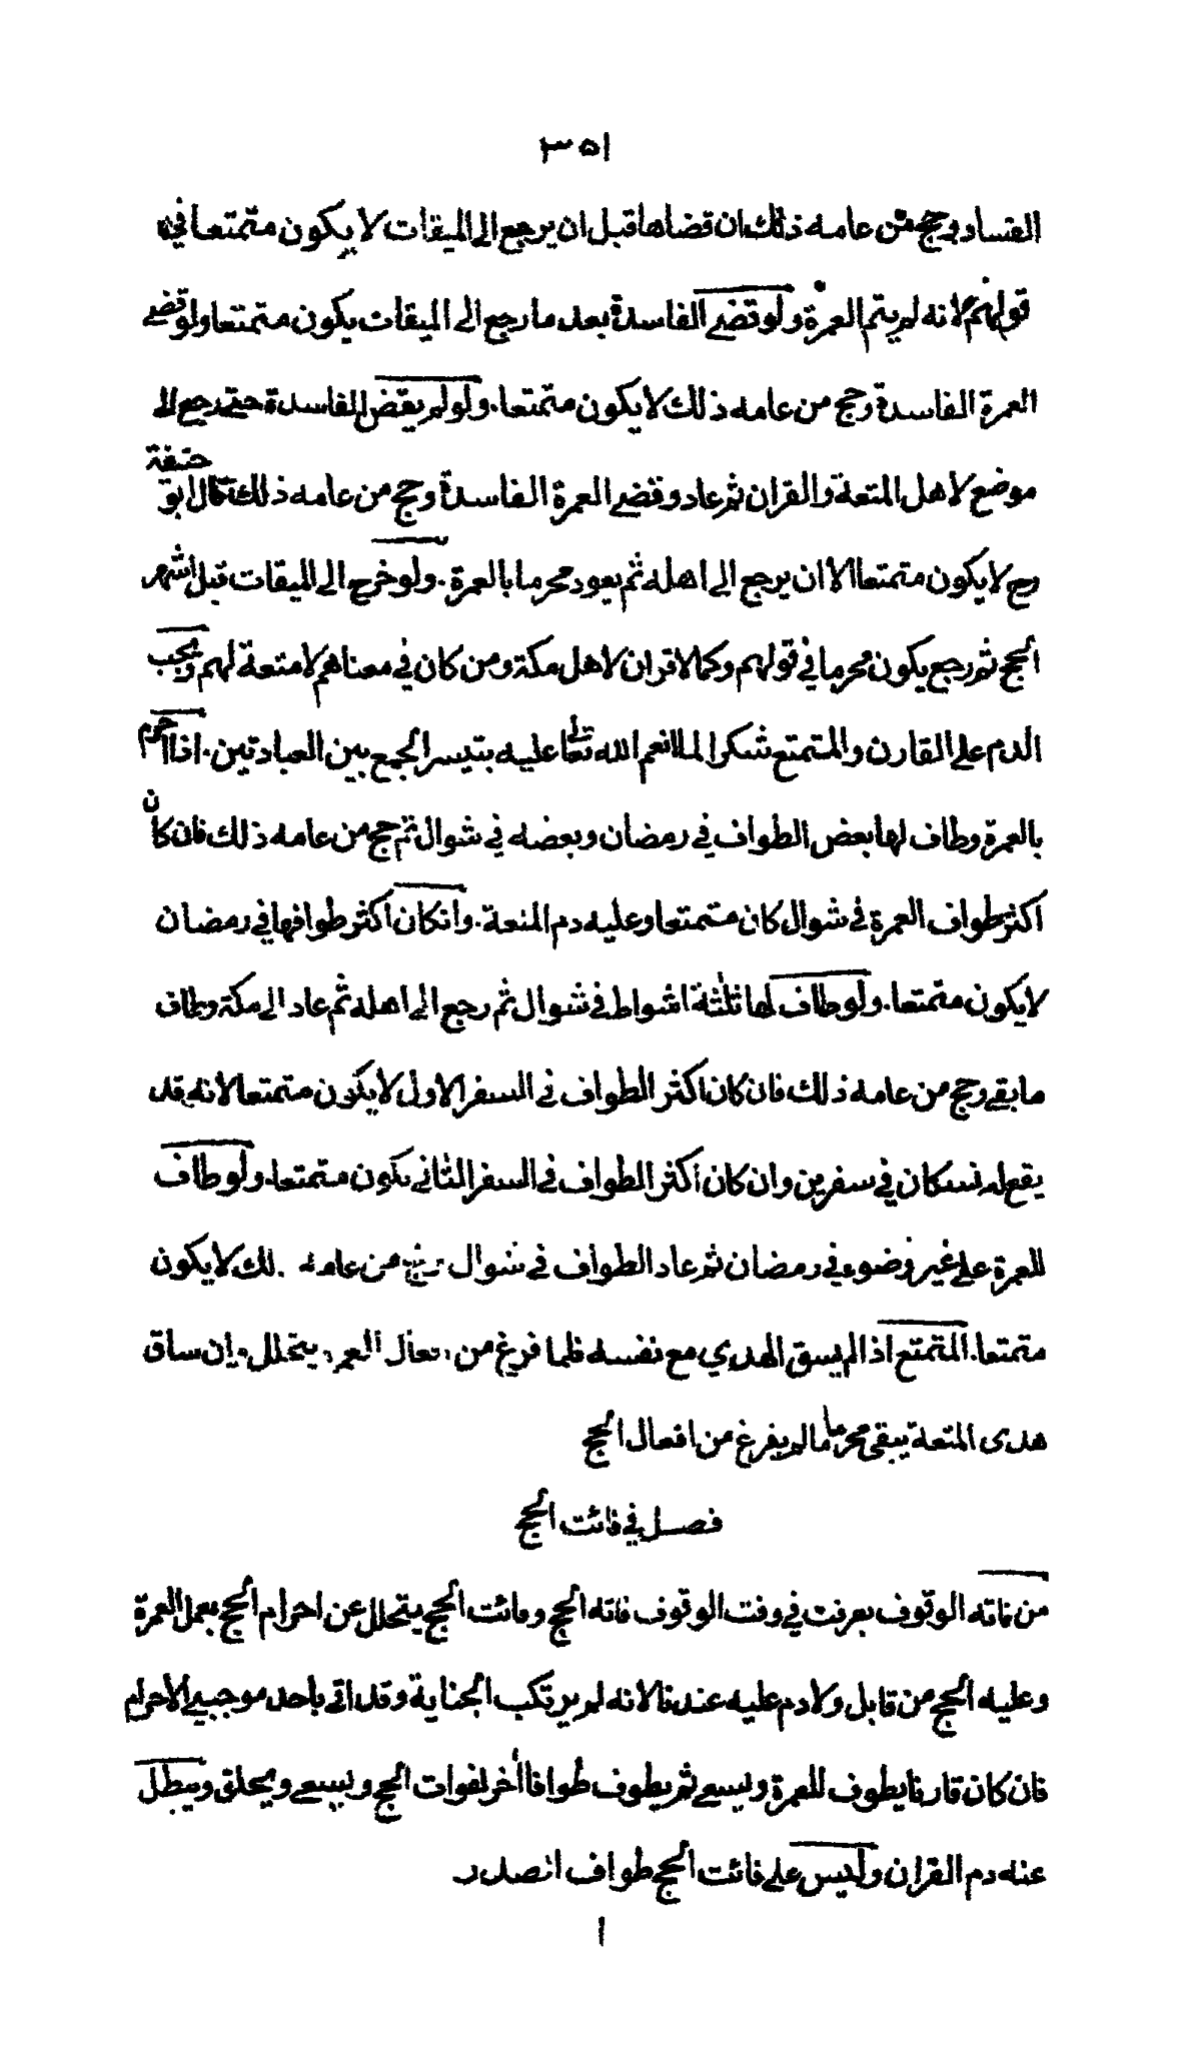 ٣٥١
الفساد وحج من عامه ذلك ان قضاها قبل ان يرجع الى الميقات لا يكون متمتعا في
قولهم لانه لم يتم العمرة ولو قضى الفاسدة بعد ما رجع الى الميقات يكون متمتعا ولو قضى
العمرة الفاسدة وحج من عامه ذلك لا يكون متمتعا. ولو لم يقض الفاسدة حتى رجع الى
موضع لاهل المتعة والقران ثم عاد وقضى العمرة الفاسدة وحج من عامه ذلك قال ابو حنيفة
رح لا يكون متمتعا الا ان يرجع الى اهله ثم يعود محرما بالعمرة. ولو خرج الى الميقات قبل اشهر
الحج ثم رجع يكون محرما في قولهم وكما لا قران لاهل مكة ومن كان في معناهم لا متعة لهم ويجب
الدم على القارن والمتمتع شكرا لما انعم الله تعالى عليه بتيسر الجمع بين العبادتين. اذا احرم
بالعمرة وطاف لها بعض الطواف في رمضان وبعضه في شوال ثم حج من عامه ذلك فان كان
اكثر طواف العمرة في شوال كان متمتعا وعليه دم المتعة. وانكان اكثر طوافها في رمضان
لا يكون متمتعا. ولو طاف لها ثلثة اشواط في شوال ثم رجع الى اهله ثم عاد الى مكة وطاف
ما بقي وحج من عامه ذلك فان كان اكثر الطواف في السفر الاول لا يكون متمتعا لانه قد
يقع له نسكان في سفرين وان كان اكثر الطواف في السفر الثاني يكون متمتعا. ولو طاف
للعمرة على غير وضوء في رمضان ثم عاد الطواف في شوال من عامه لا يكون
متمتعا. المتمتع اذا لم يسق الهدي مع نفسه فلما فرغ من يتحلل وان ساق
هدى المتعة يبقى محرما ما لم يفرغ من افعال الحج
فصل في فائت الحج
من فاته الوقوف بعرفت في وقت الوقوف فاته الحج وفائت الحج يتحلل عن احرام الحج بعمل العمرة
وعليه الحج من قابل ولا دم عليه عندنا لانه لم يرتكب الجناية وقد اتى باحد موجبي الاحرام
فان كان قارنا يطوف للعمرة ويسعى ثم يطوف طوافا أخر لفوات الحج ويسعى ويحلق ويبطل
عنه دم القران وليس على فائت الحج طواف الصدر